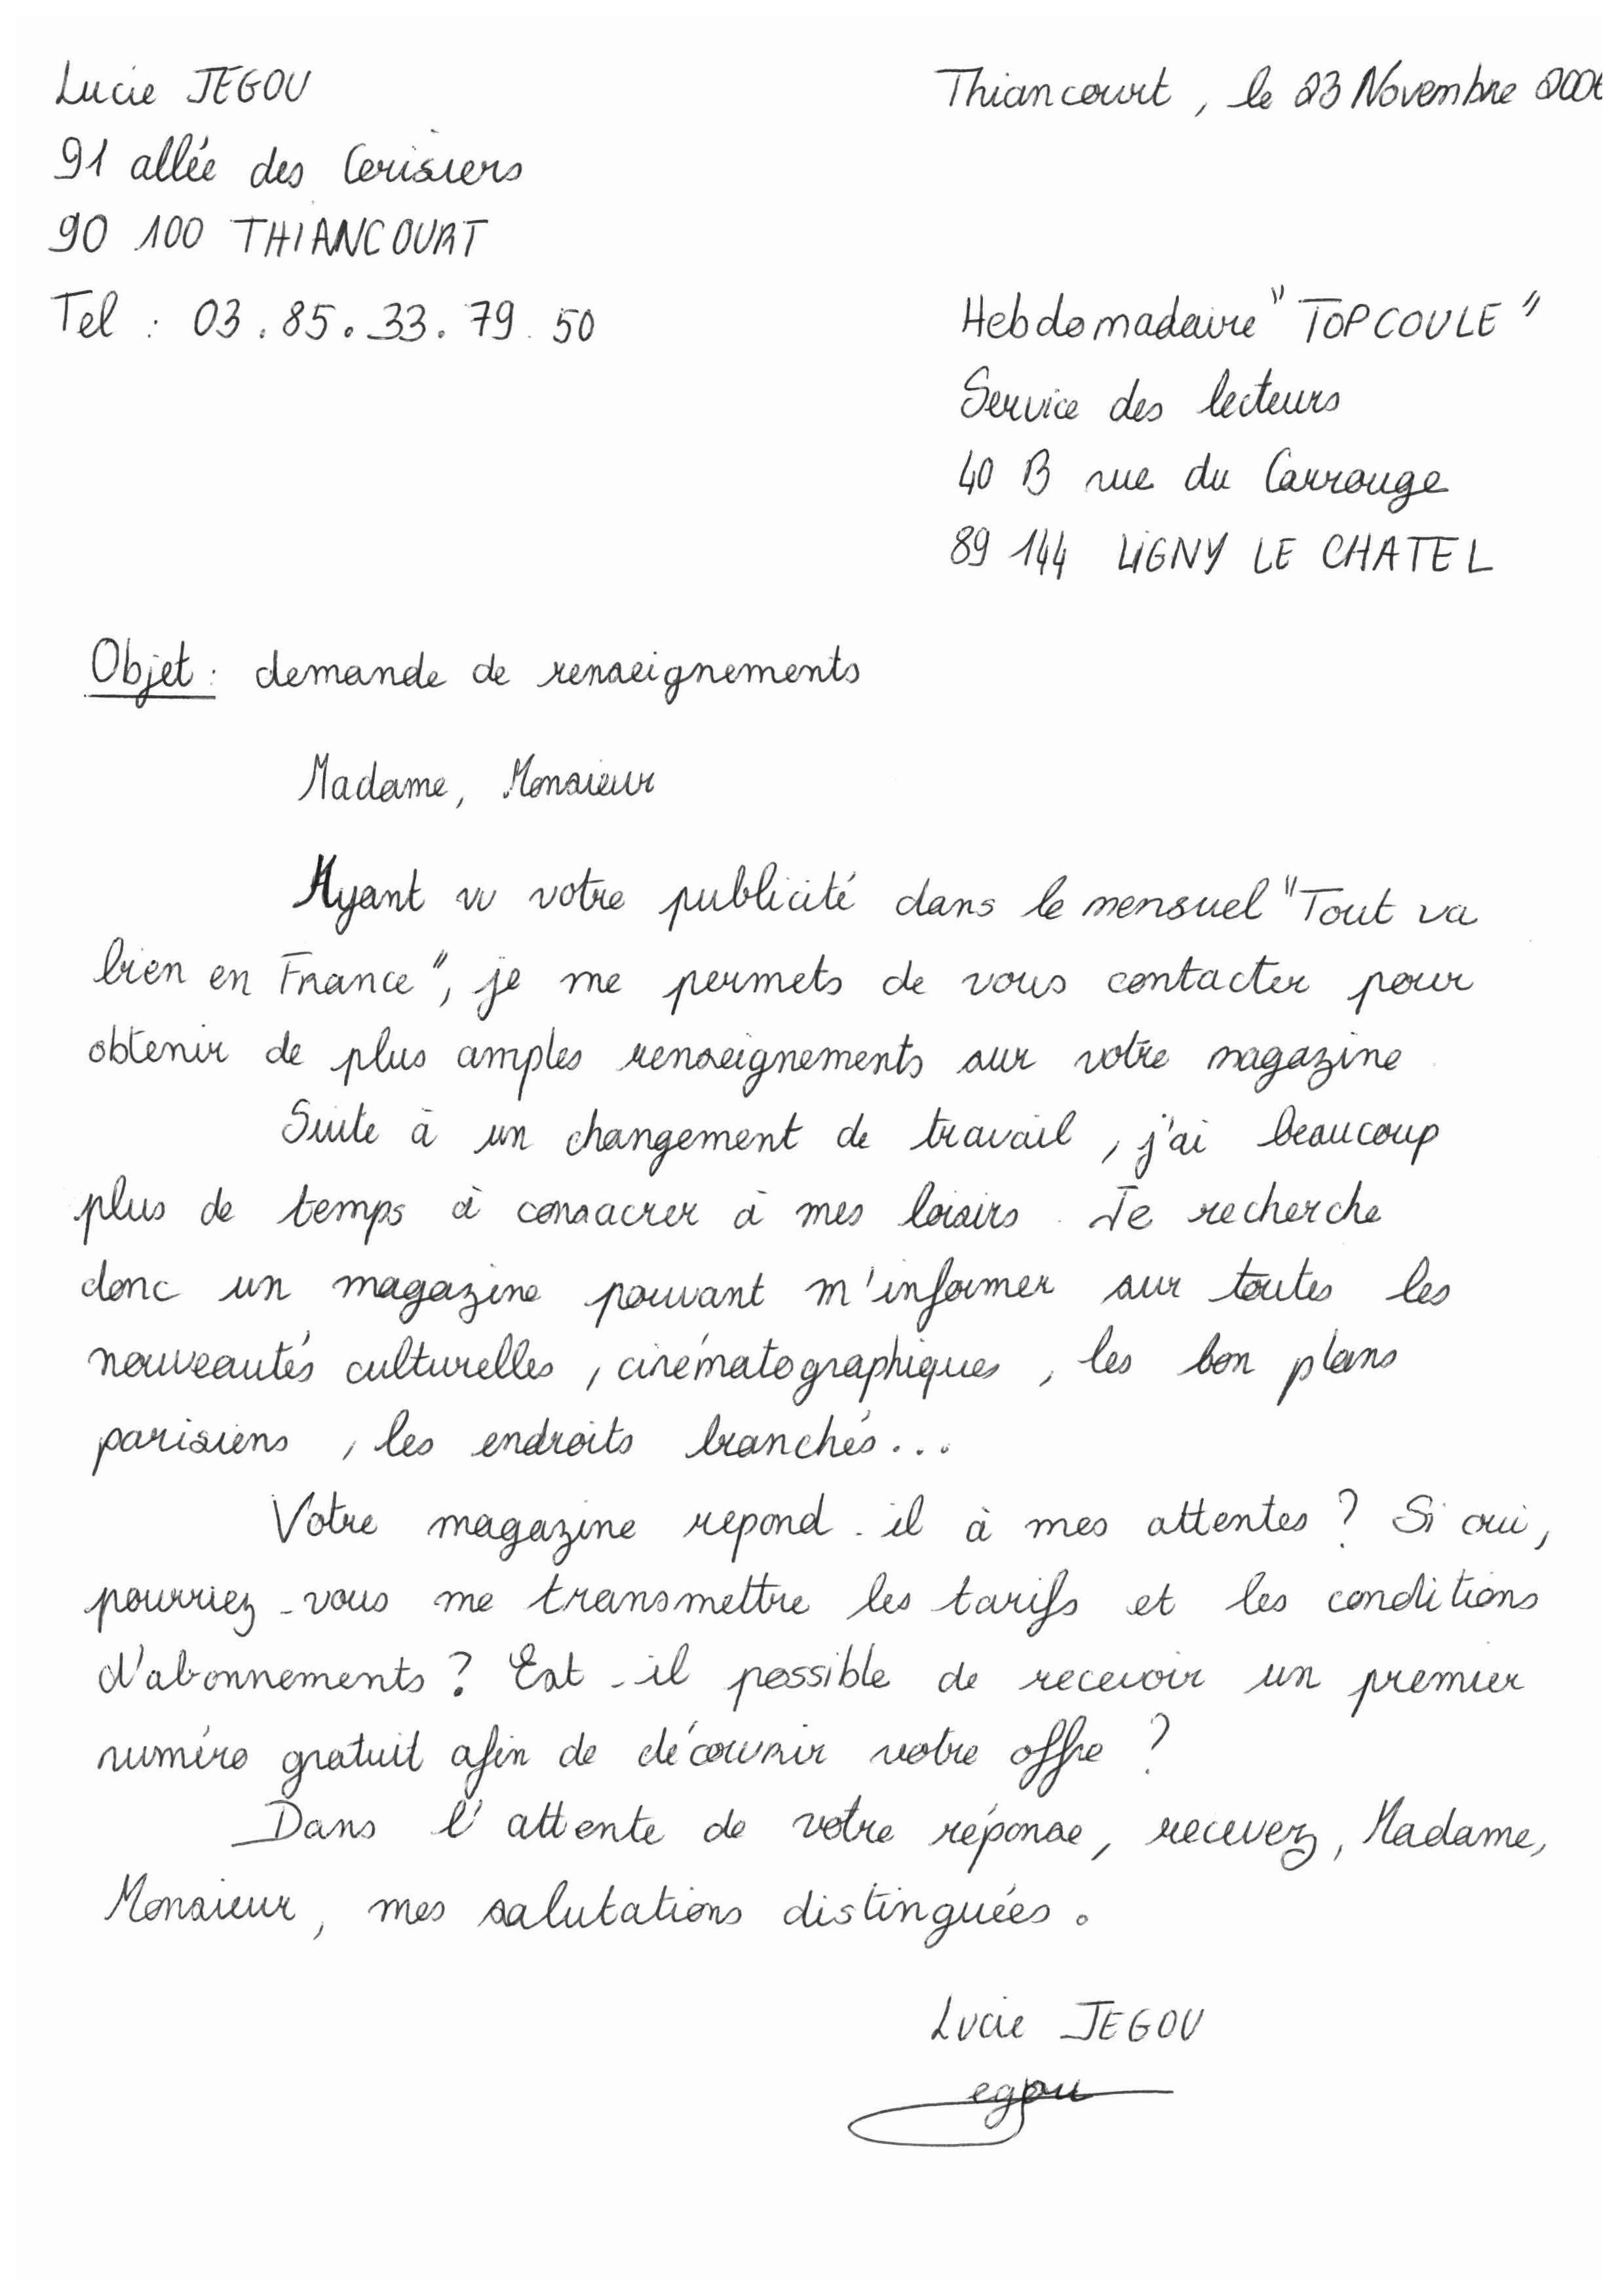 Lucie JEGOU
Thiancourt, le 23 Novembre
91 allée des Cerisiers
90 100 THIANCOURT
Tel : 03.85.33.79.50
Hebdomadaire "TOPCOULE"
Service des lecteurs
40 B rue du Carrouge
89 144 LIGNY LE CHATEL
Objet : demande de renseignements
Madame, Monsieur
Ayant vu votre publicité dans le mensuel "Tout va
bien en France", je me permets de vous contacter pour
obtenir de plus amples renseignements sur votre magazine.
Suite à un changement de travail, j'ai beaucoup
plus de temps à consacrer à mes loisirs. Je recherche
donc un magazine pouvant m'informer sur toutes les
nouveautés culturelles, cinématographiques, les bon plans
parisiens, les endroits branchés...
Votre magazine repond-il à mes attentes ? Si oui,
pourriez-vous me transmettre les tarifs et les conditions
d'abonnements ? Est-il possible de recevoir un premier
numéro gratuit afin de découvrir votre offre ?
Dans l'attente de votre réponse, recevez, Madame,
Monsieur, mes salutations distinguées.
Lucie JEGOU
egou